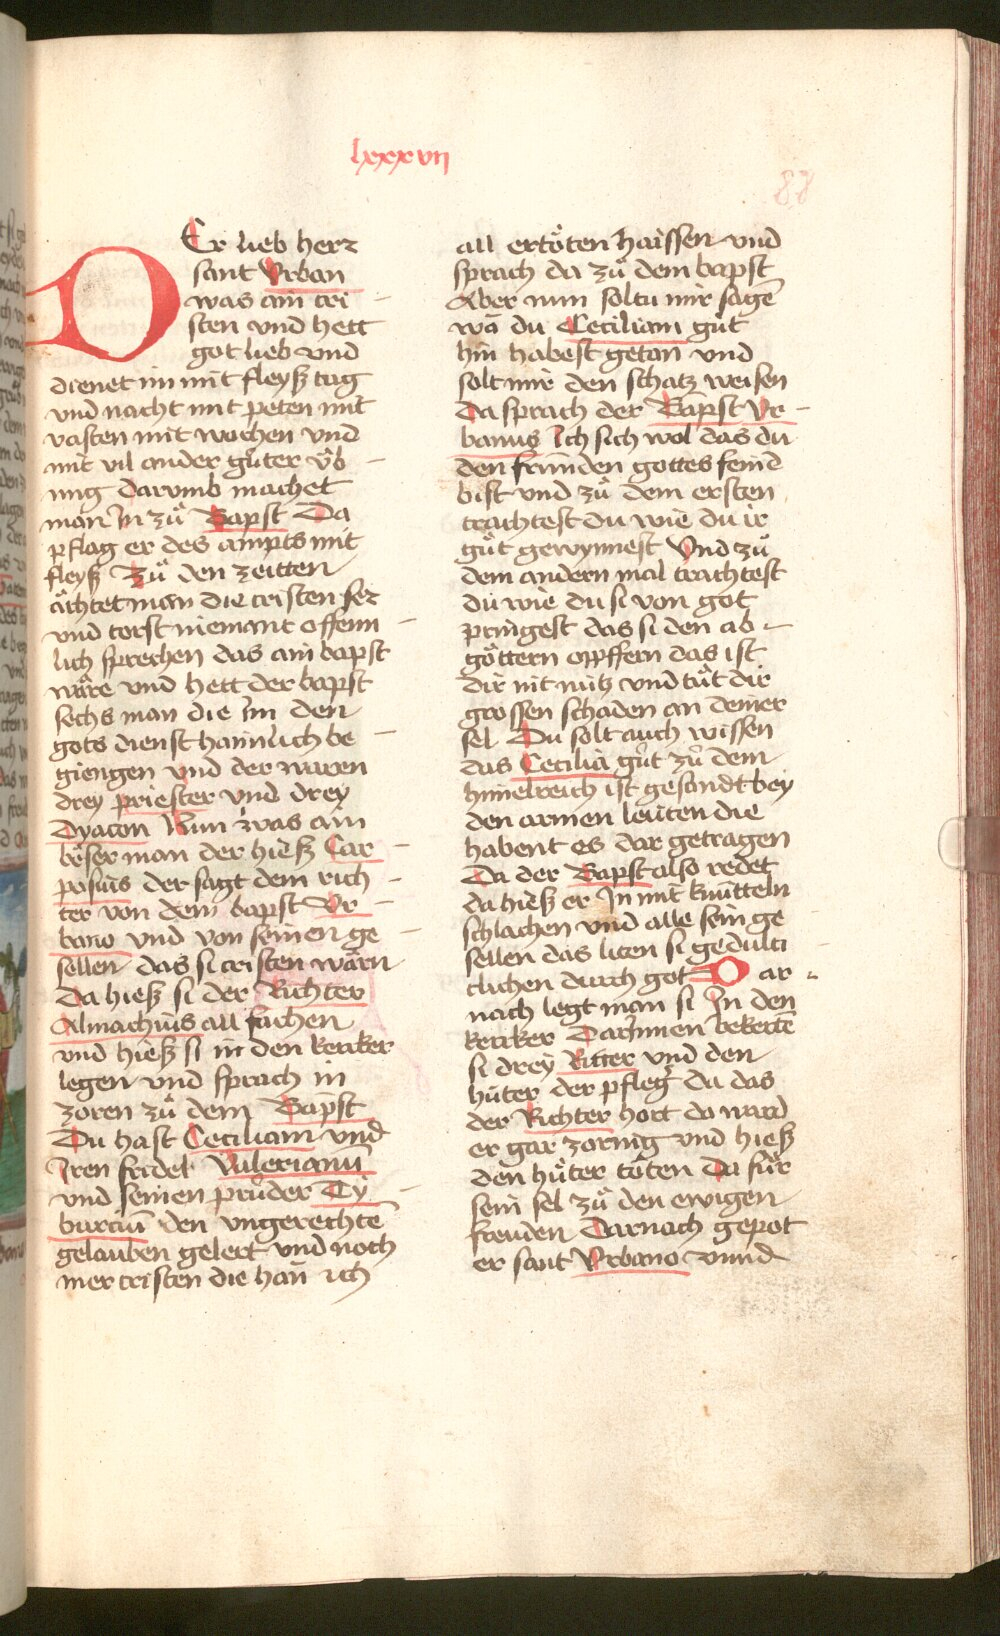 lxxxvij
88
DEr lieb herz
sant Vrban
was ain cri
sten vnd hett
got lieb vnd
dienet im mit fleyß tag
vnd nacht mit peten mit
vasten mit wachen vnd
mit vil ander gůter v̊b
ung darvmb machet
man In zů Bapst Da
pflag er des ampts mit
fleyß Zů den zeitten
ächtet man die cristen ser
vnd torst niemant offenn
lich sprechen das ain bapst
wäre vnd hett der bapst
sechs man die Im den
gots dienst haimlich be
giengen vnd der waren
drey priester vnd drey
Dyacon Nun was ain
böser man der hieß Car
pasius der sagt dem rich
ter von dem bapst Vr
bano vnd von seinen ge
sellen das si cristen wärn
Da hieß si der Richter
Almachius all fachen
vnd hieß si in den kercker
legen vnd sprach in
zoren zů dem Bapst
Du hast Ceciliam vnd
Iren fridel Valerianū
vnd seinen průder Ty
burciū den vngerechtē
gelauben gelert vnd noch
mer cristen die han ich
all ertöten haissen vnd
sprach da zů dem bapst
Aber nun soltu mir sagē
wā du Ceciliam gůt
hin habest getan vnd
solt mir den schatz weisen
Da sprach der Bapst Vr
banus Ich sich wol das du
den frunden gottes feind
bist vnd zů dem ersten
trachtest du wie du ir
gůt gewynnest Vnd zů
dem andern mal trachtest
du wie du si von got
pringest das si den ab
göttern opffern das ist
dir nit nütz vnd tůt dir
grossen schaden an deiner
sel Du solt auch wissen
das Cecilia gůt zů dem
himelreich ist gesandt bey
den armen leüten die
habent es dar getragen
Da der Bapst also redet
da hieß er In mit knütteln
schlachen vnd alle sein ge
sellen das liten si gedulti
clichen durch got Dar
nach legt man si In den
kercker Darinnen bekertē
si drey Ritter vnd den
hüter der pfleg da das
der Richter hort do ward
er gar zornig vnd hieß
den hüter töten Da für
sein sel zů den ewigen
freuden Darnach gepot
er sant Vrbano vnnd